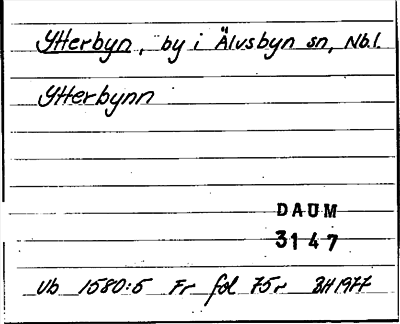 Ytterbyn, by i Älvsbyn sn, Nb.l.
Ytterbynn
DAUM
3147
Ub 1580:5 Fr fol 75r BH 1977